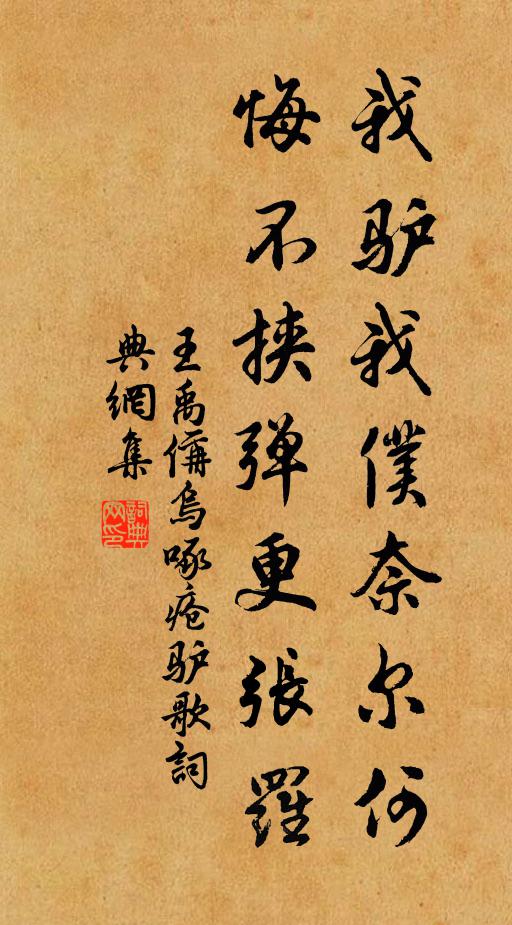 我驴我僕奈尔何
悔不挟弹更張羅
王禹偁烏啄疮驴歌詞
典網集
詞典网印